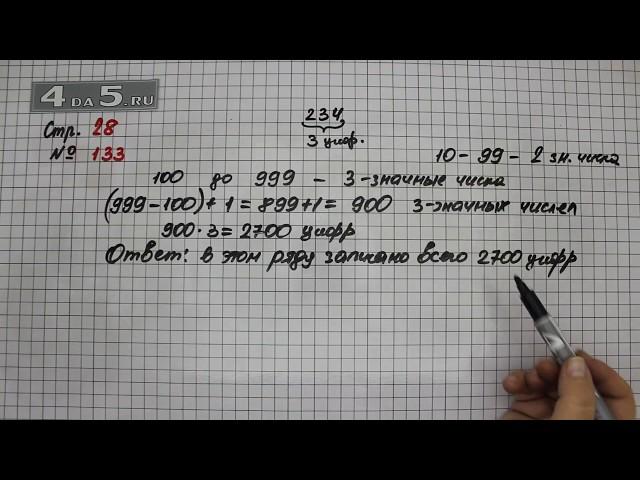 4DA5.RU
Стр. 28
№ 133
234
3 цифр.
10 - 99 - 2 зн. числа
100 до 999 - 3-значные числа
(999-100)+1=899+1= 900 3-значных чисел
900·3=2700 цифр
Ответ: в этом ряду записано всего 2700 цифр